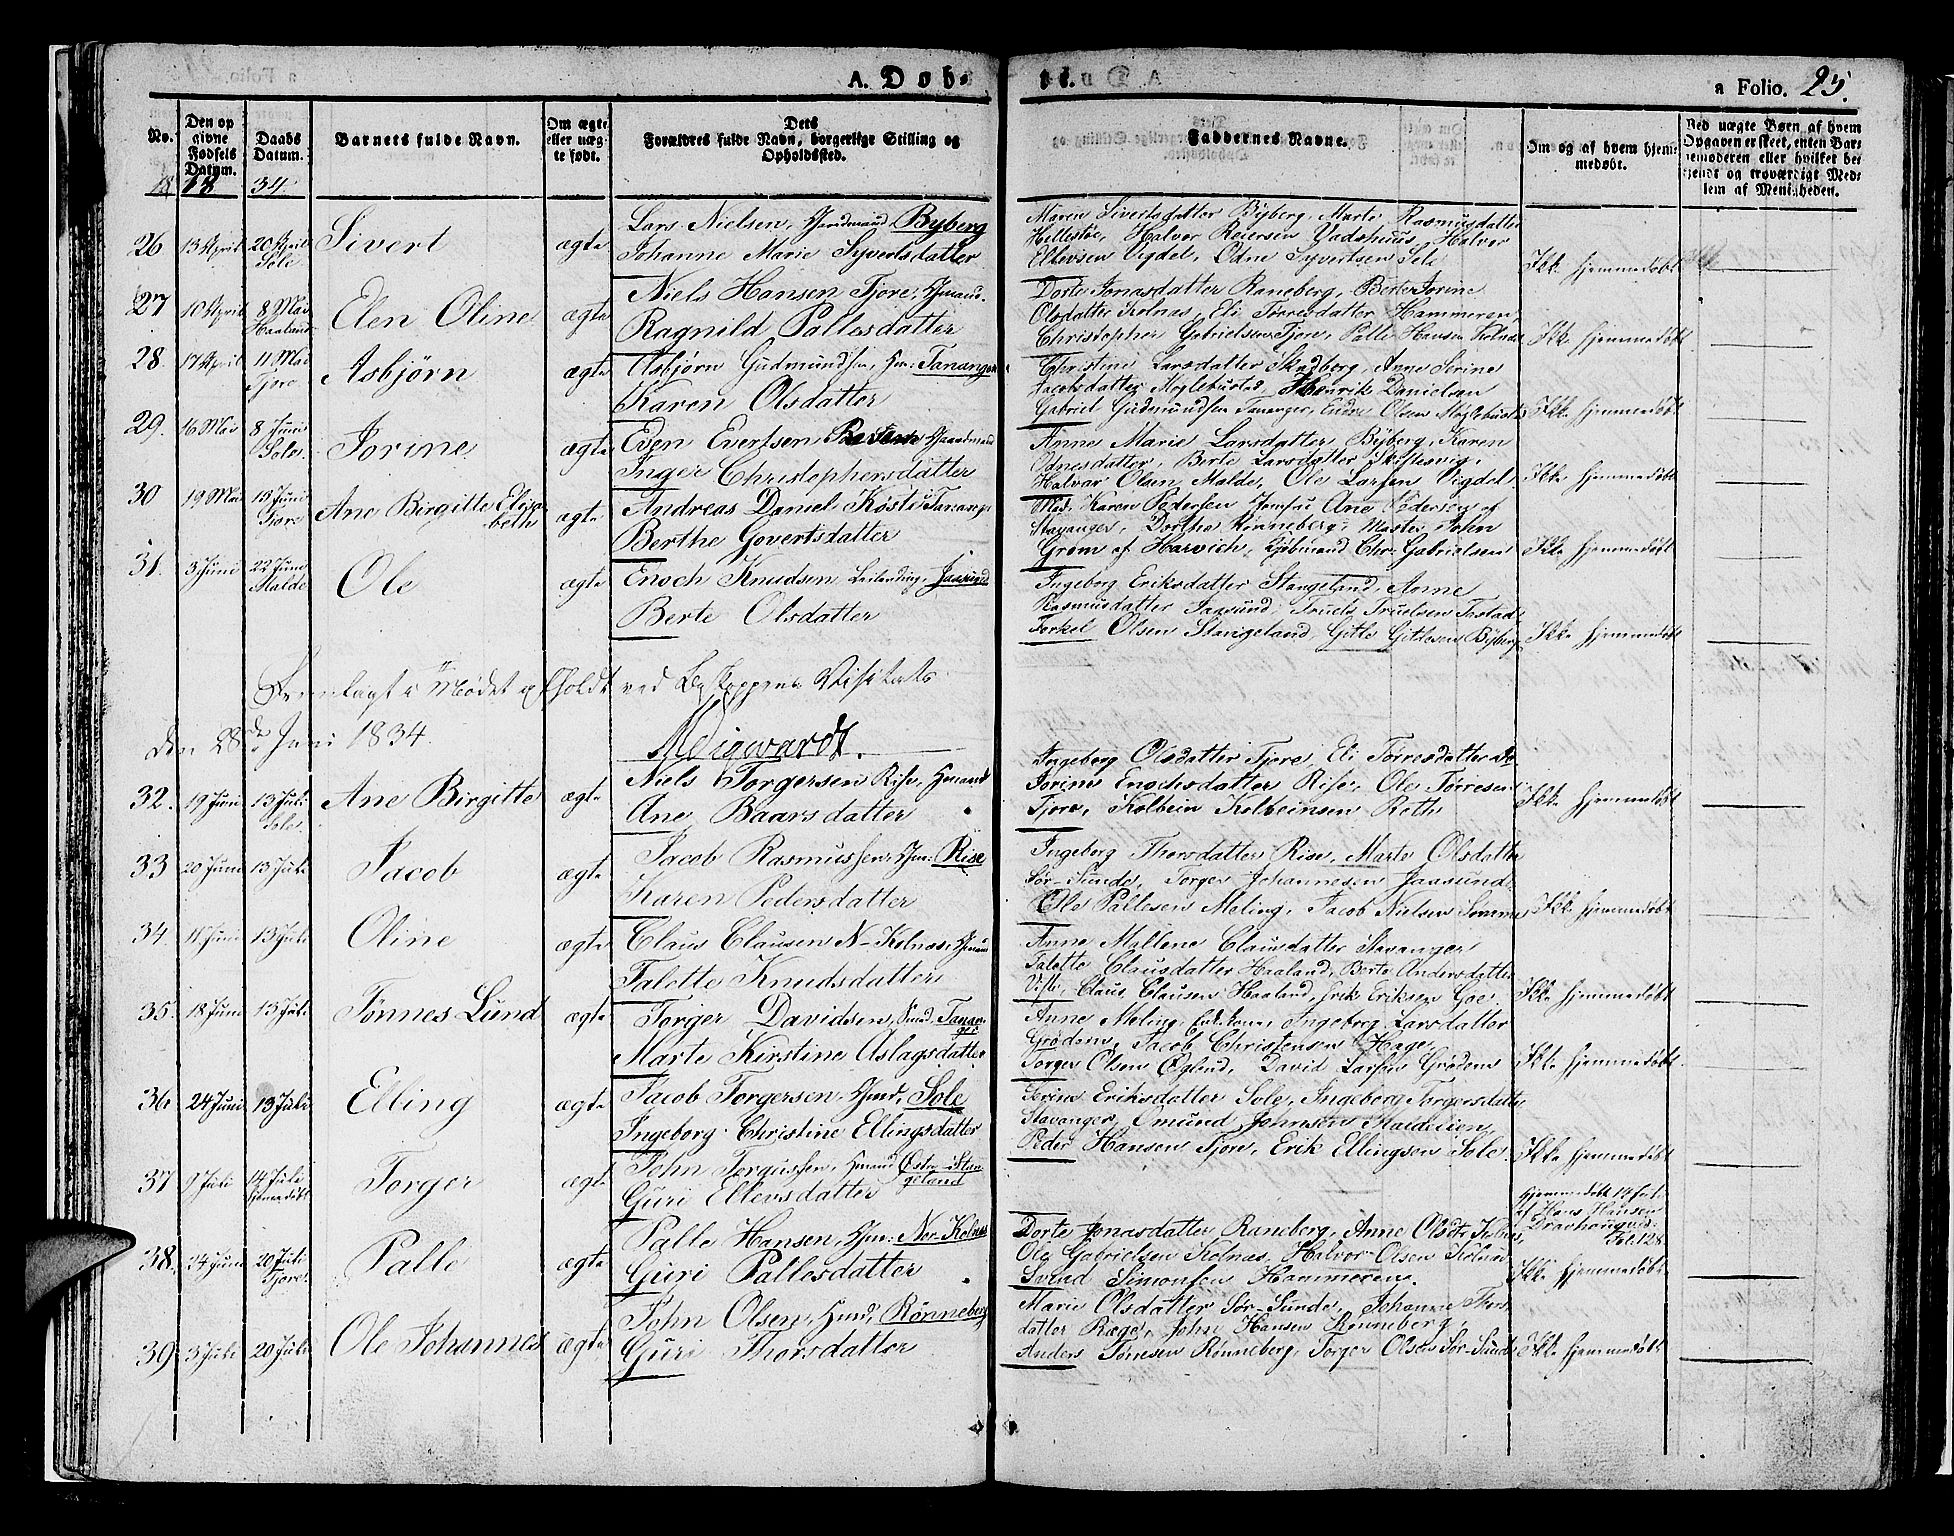 A. Døb-
te.
a Folio. 25.
No.
Den opgivne Fødsels Datum.
Daabs Datum.
Barnets fulde Navn.
Om ægte eller uægte født.
Dets Forældres fulde Navn, borgerlige Stilling og Opholdssted.
Faddernes Navne.
Om og af hvem hjemmedøbt.
Ved uægte Børn af hvem Opgaven er skeet, enten Barnemoderen eller hvilket bekjendt og troværdigt Medlem af Menigheden.
18 34.
26 13 April 20 April Sole Sivert ægte
Lars Nielsen, Gaardmand Byberg
Johanne Marie Syvertsdatter
Maren Sivertsdatter Byberg, Marte Rasmusdatter
Hellestøe, Halvor Reiersen Vadshuus, Halvor
Ellevsen Vigdel, Odne Syvertsen Sele
Ikke hjemmedøbt
27 10 April 8 Mai Haaland Elen Oline ægte
Niels Hansen Tjore, Gmand.
Ragnild Pallesdatter
Dorte Jonasdatter Raneberg, Berte Serine
Olsdatter Kolnas, Eli Torresdatter Hammeren,
Christopher Gabrielsen Tjore, Palle Hansen Kolnas
Ikke hjemmedøbt
28 17 April 11 Mai Tjore Asbjørn ægte
Asbjørn Gudmundsen, Tananger
Karen Olsdatter
Christine Larsdatter Skadberg, Anne Serine
Jacobsdatter Myglebustad, Henrik Danielsen
Gabriel Gudmundsen Tananger, Endre Olsen Myglebustad
Ikke hjemmedøbt
29. 16 Mai 8 Juni Sole. Jorine ægte
Even Evertsen Gaardmand
Inger Christophersdatter
Anne Marie Larsdatter, Byberg, Karen
Odnesdatter, Berte Larsdatter Skiftesvig,
Halvar Olsen Malde, Ole Larsen Vigdel.
Ikke hjemmedøbt
30 19 Mai 15 Juni Tjore Ane Birgitte Elisabeth ægte
Andreas Daniel Køsti Tananger
Berthe Govertsdatter
Md. Karen Pedersen, Jomfru Ane Pedersen af
Stavanger, Dorthe Rinneberg, Master John
Grøm af Harvich, Kjøbmand Chr. Gabrielsen
Ikke hjemmedøbt
31. 3 Juni 22 Juni Malde Ole ægte
Enoch Knudsen Leilending, Jaasund
Berte Olsdatter
Ingeborg Eriksdatter Stangeland, Anne
Rasmusdatter Jaasund, Truels Truelsen Tjostad
Torkel Olsen Stangeland, Gitle Gitlesen Byberg
Ikke hjemmedøbt
Fremlagt i Mødet afholdt ved Biskoppens Visitats
den 28de Juni 1834.
32. 19 Juni 13 Juli Sole. Ane Birgitte ægte
Niels Torgersen Rise, Gmand
Ane Baarsdatter
Ingeborg Olsdatter Tjore, Eli Tørresdatter
Jorine Enochsdatter Rise, Ole Tørresen
Tjore, Kolbein Kolbeinsen Roth
Ikke hjemmedøbt
33 20 Juni 13 Juli Jacob ægte
Jacob Rasmussen, Gm: Rise
Karen Pedersdatter
Ingeborg Thorsdatter Rise, Marte Olsdatter
Sør-Sunde, Torger Johannesen Jaasund
Ole Pallesen Meling, Jacob Nielsen Somme
Ikke hjemmedøbt
34 11 Juni 13 Juli Oline ægte
Claus Clausen N-Kolnas, Gmand
Talette Knudsdatter
Anne Mallene Clausdatter Stavanger
Talette Clausdatter Haaland, Berte Andersdatter
Viste, Claus Clausen Haaland, Erik Eriksen Goe.
Ikke hjemmedøbt
35. 18 Juni 13 Juli Tønnes Lund ægte
Torger Davidsen, Tananger
Marte Kirstine Aslagsdatter
Anne Meling, Enkekone, Ingeborg Larsdatter
Grødem, Jacob Christensen Hage,
Torger Olsen Øglend, David Larsen Grødem
Ikke hjemmedøbt
36 24 Juni 13 Juli Elling ægte
Jacob Torgersen, Gmd, Sole
Ingeborg Christine Ellingsdatter
Serine Eriksdatter Sole, Ingeborg Torgersdatter
Stavanger, Omund Johnsen Staldelien,
Peder Hansen Tjore, Erik Ellingsen Sole
Ikke hjemmedøbt
37 9 Juli 14 Juli hjemmedøbt Torger ægte
John Torgussen, Gmand Østre-Stangeland
Guri Ellevsdatter
hjemmedøbt 14 Juli
af Hans Hansen
Fol: 128
38. 24 Juni 20 Juli Tjore Palle ægte
Palle Hansen, Gm: Nor-Kolnas
Guri Pallesdatter
Dorte Jonasdatter Raneberg, Anne Olsdtr Kolnas,
Ole Gabrielsen Kolnas, Halvor Olsen Kolnas
Svend Simonsen Hammeren.
Ikke hjemmedøbt
39 3 Juli 20 Juli Ole Johannes ægte
John Olsen, Gmd, Rønneberg
Guri Thorsdatter
Marie Olsdatter Sør-Sunde, Johanne Thorsdatter
Ræge, John Hansen Rønneberg,
Anders Tørresen Rønneberg, Torger Olsen Sør-Sunde
Ikke hjemmedøbt